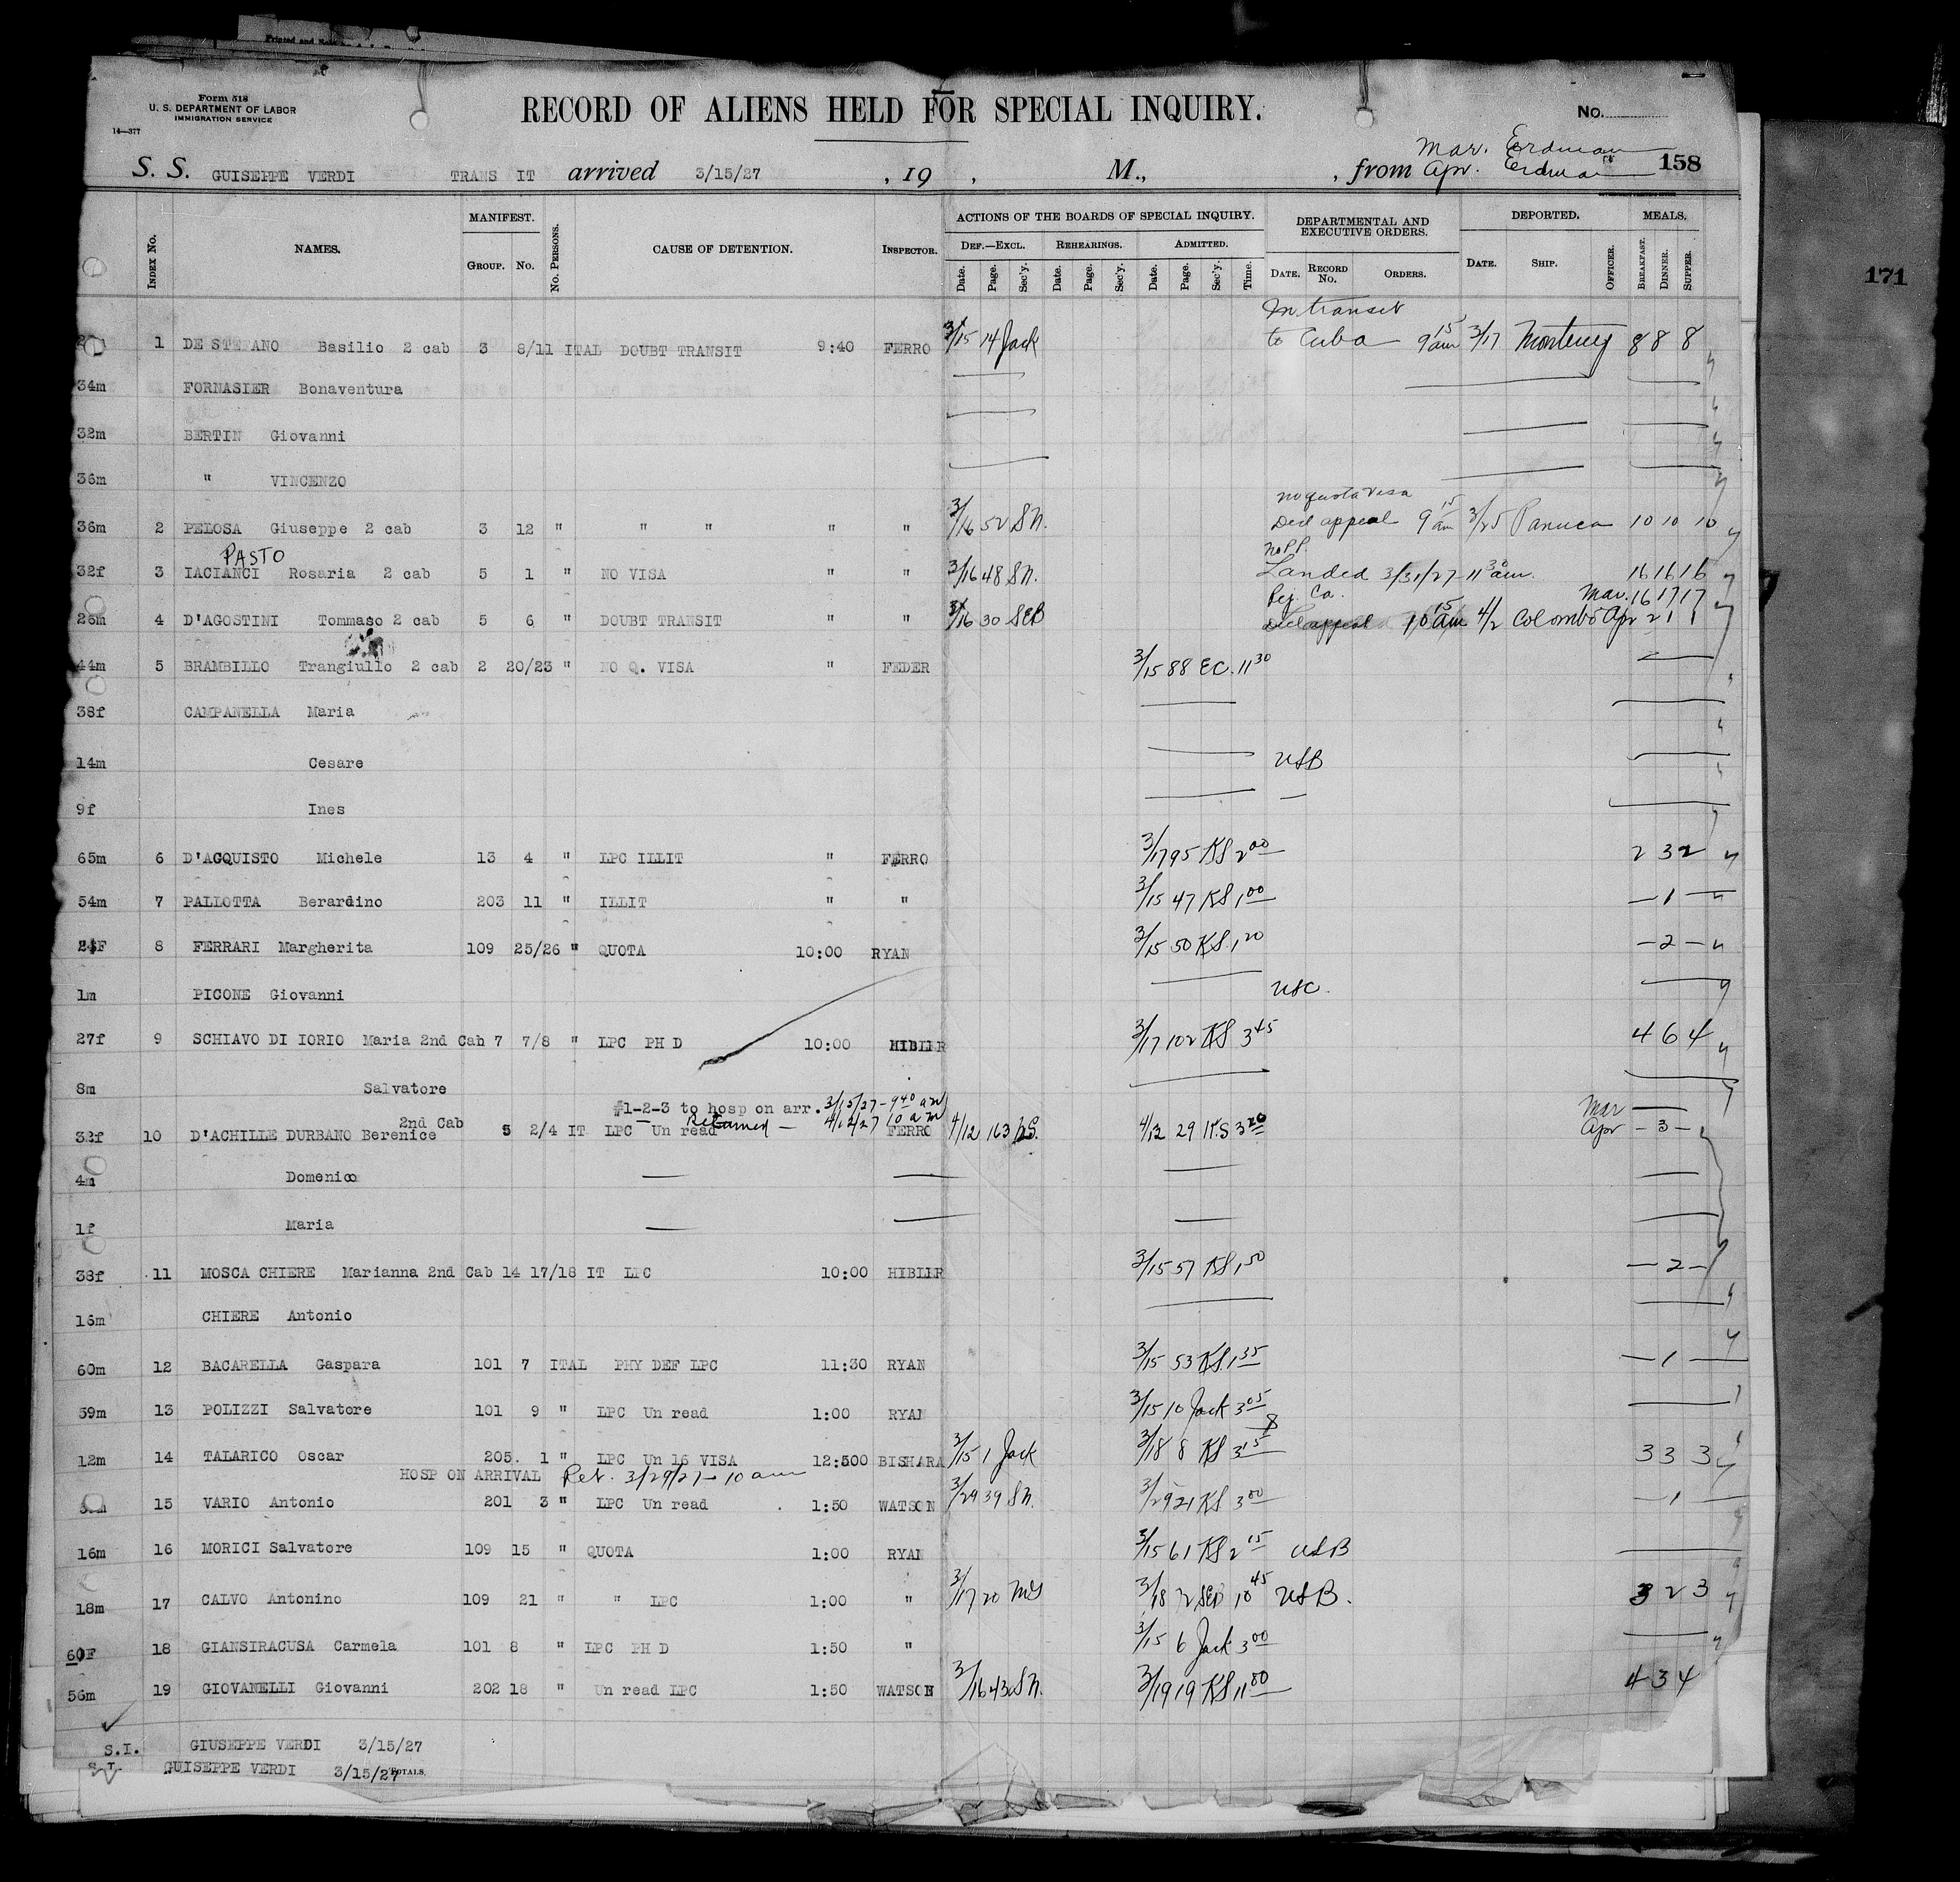 Printed and
Form 518
U. S. DEPARTMENT OF LABOR
IMMIGRATION SERVICE
14—377
RECORD OF ALIENS HELD FOR SPECIAL INQUIRY.
No.
Mar. Erdman
S. S. GUISEPPE VERDI TRANS IT arrived 3/15/27 , 19 , M., , from Apr. Erdman 158
171
INDEX No. NAMES. MANIFEST. GROUP. No. No. PERSONS. CAUSE OF DETENTION. INSPECTOR. ACTIONS OF THE BOARDS OF SPECIAL INQUIRY. DEF.—EXCL. REHEARINGS. ADMITTED. Date. Page. Sec'y. Date. Page. Sec'y. Date. Page. Sec'y. Time. DEPARTMENTAL AND EXECUTIVE ORDERS. DATE. RECORD No. ORDERS. DEPORTED. DATE. SHIP. OFFICER. MEALS. BREAKFAST. DINNER. SUPPER.
In transit
1 DE STEFANO Basilio 2 cab 3 8/11 ITAL DOUBT TRANSIT 9:40 FERRO 3/15 14 Jack to Cuba 9 15 am 3/17 8 8 8
34m FORNASIER Bonaventura
32m BERTIN Giovanni
36m " VINCENZO
no quota visa
36m 2 PELOSA Giuseppe 2 cab 3 12 " " " " " 3/16 52 SN. Decl appeal 9 15 am 3/25 Panuco 10 10 10
PASTO
no P.P.
32f 3 IACIANCI Rosaria 2 cab 5 1 " NO VISA " " 3/16 48 SN. Landed 3/31/27 - 11 30 am. 16 16 16
Mar. 16 17 17
26m 4 D'AGOSTINI Tommaso 2 cab 5 6 " DOUBT TRANSIT " " 3/16 30 SEB appeal 10 15 am 4/2 Colombo Apr 2 1 1
44m 5 BRAMBILLO Trangiullo 2 cab 2 20/23 " NO Q. VISA " FEDER 3/15 88 EC. 11 30
38f CAMPANELLA Maria
14m Cesare USB
9f Ines
65m 6 D'ACQUISTO Michele 13 4 " LPC ILLIT " FERRO 3/17 95 KS 2 00 2 3 2
54m 7 PALLOTTA Berardino 203 11 " ILLIT " " 3/15 47 KS 1 00 — 1 —
8 FERRARI Margherita 109 25/26 " QUOTA 10:00 RYAN 3/15 50 KS. 1 20 — 2 —
1m PICONE Giovanni USC.
27f 9 SCHIAVO DI IORIO Maria 2nd Cab 7 7/8 " LPC PH D 10:00 HIBLER 3/17 102 KS 3 45 4 6 4
8m Salvatore
#1-2-3 to hosp on arr. 3/15/27 - 9 40 am
2nd Cab Returned — 4/12/27 10 am Mar
32f 10 D'ACHILLE DURBANO Berenice 5 2/4 IT LPC Un read FERRO 4/12 163 4/12 29 K.S 3 20 Apr — 3 —
4m Domenico
1f Maria
38f 11 MOSCA CHIERE Marianna 2nd Cab 14 17/18 IT LPC 10:00 HIBLER 3/15 57 KS 1 50 — 2 —
16m CHIERE Antonio
60m 12 BACARELLA Gaspara 101 7 ITAL PHY DEF LPC 11:30 RYAN 3/15 53 KS. 1 35 — 1 —
59m 13 POLIZZI Salvatore 101 9 " LPC Un read 1:00 RYAN 3/15 10 Jack 3 05
12m 14 TALARICO Oscar 205. 1 " LPC Un 16 VISA 12:500 BISHARA 3/15 1 Jack 3/18 8 KS 3 15 3 3 3
HOSP ON ARRIVAL Ret. 3/29/27 - 10 am
15 VARIO Antonio 201 3 " LPC Un read 1:50 WATSON 3/29 39 SN. 3/29 21 KS 3 00 — 1 —
16m 16 MORICI Salvatore 109 15 " QUOTA 1:00 RYAN 3/15 61 KS 2 15 USB
18m 17 CALVO Antonino 109 21 " " LPC 1:00 " 3/17 20 3/18 2 SEB 10 45 USB. 3 2 3
60F 18 GIANSIRACUSA Carmela 101 8 " LPC PH D 1:50 " 3/15 6 Jack 3 00
56m 19 GIOVANELLI Giovanni 202 18 " Un read LPC 1:50 WATSON 3/16 43 SN. 3/19 19 KS 11 00 4 3 4
S.I. GIUSEPPE VERDI 3/15/27
S.I. GUISEPPE VERDI 3/15/27 TOTALS.